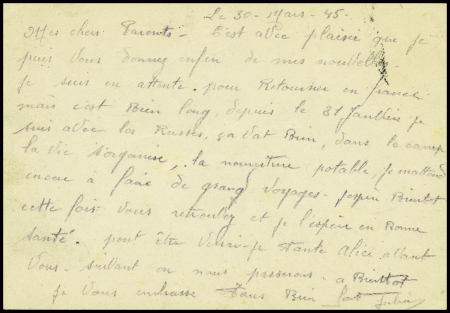 Le 30 - Mars - 45 -
Mes chers Parents - C'est avec plaisir que je
puis vous donner enfin de mes nouvelles -
je suis en attente pour Retourner en france
mais c'est Bien long, depuis le 31 Janvier je
suis avec les Russes, ça vat Bien, dans le camp
la vie s'organise, la nourriture potable, je m'attend
encore à faire de grang voyages - Bientot
cette fois vous retrouvez et je l'espère en Bonne
santé. peut être verrai-je Tante Alice avant
vous - suivant ou nous passerons - a Bientot
je vous embrasse Tous Bien fort